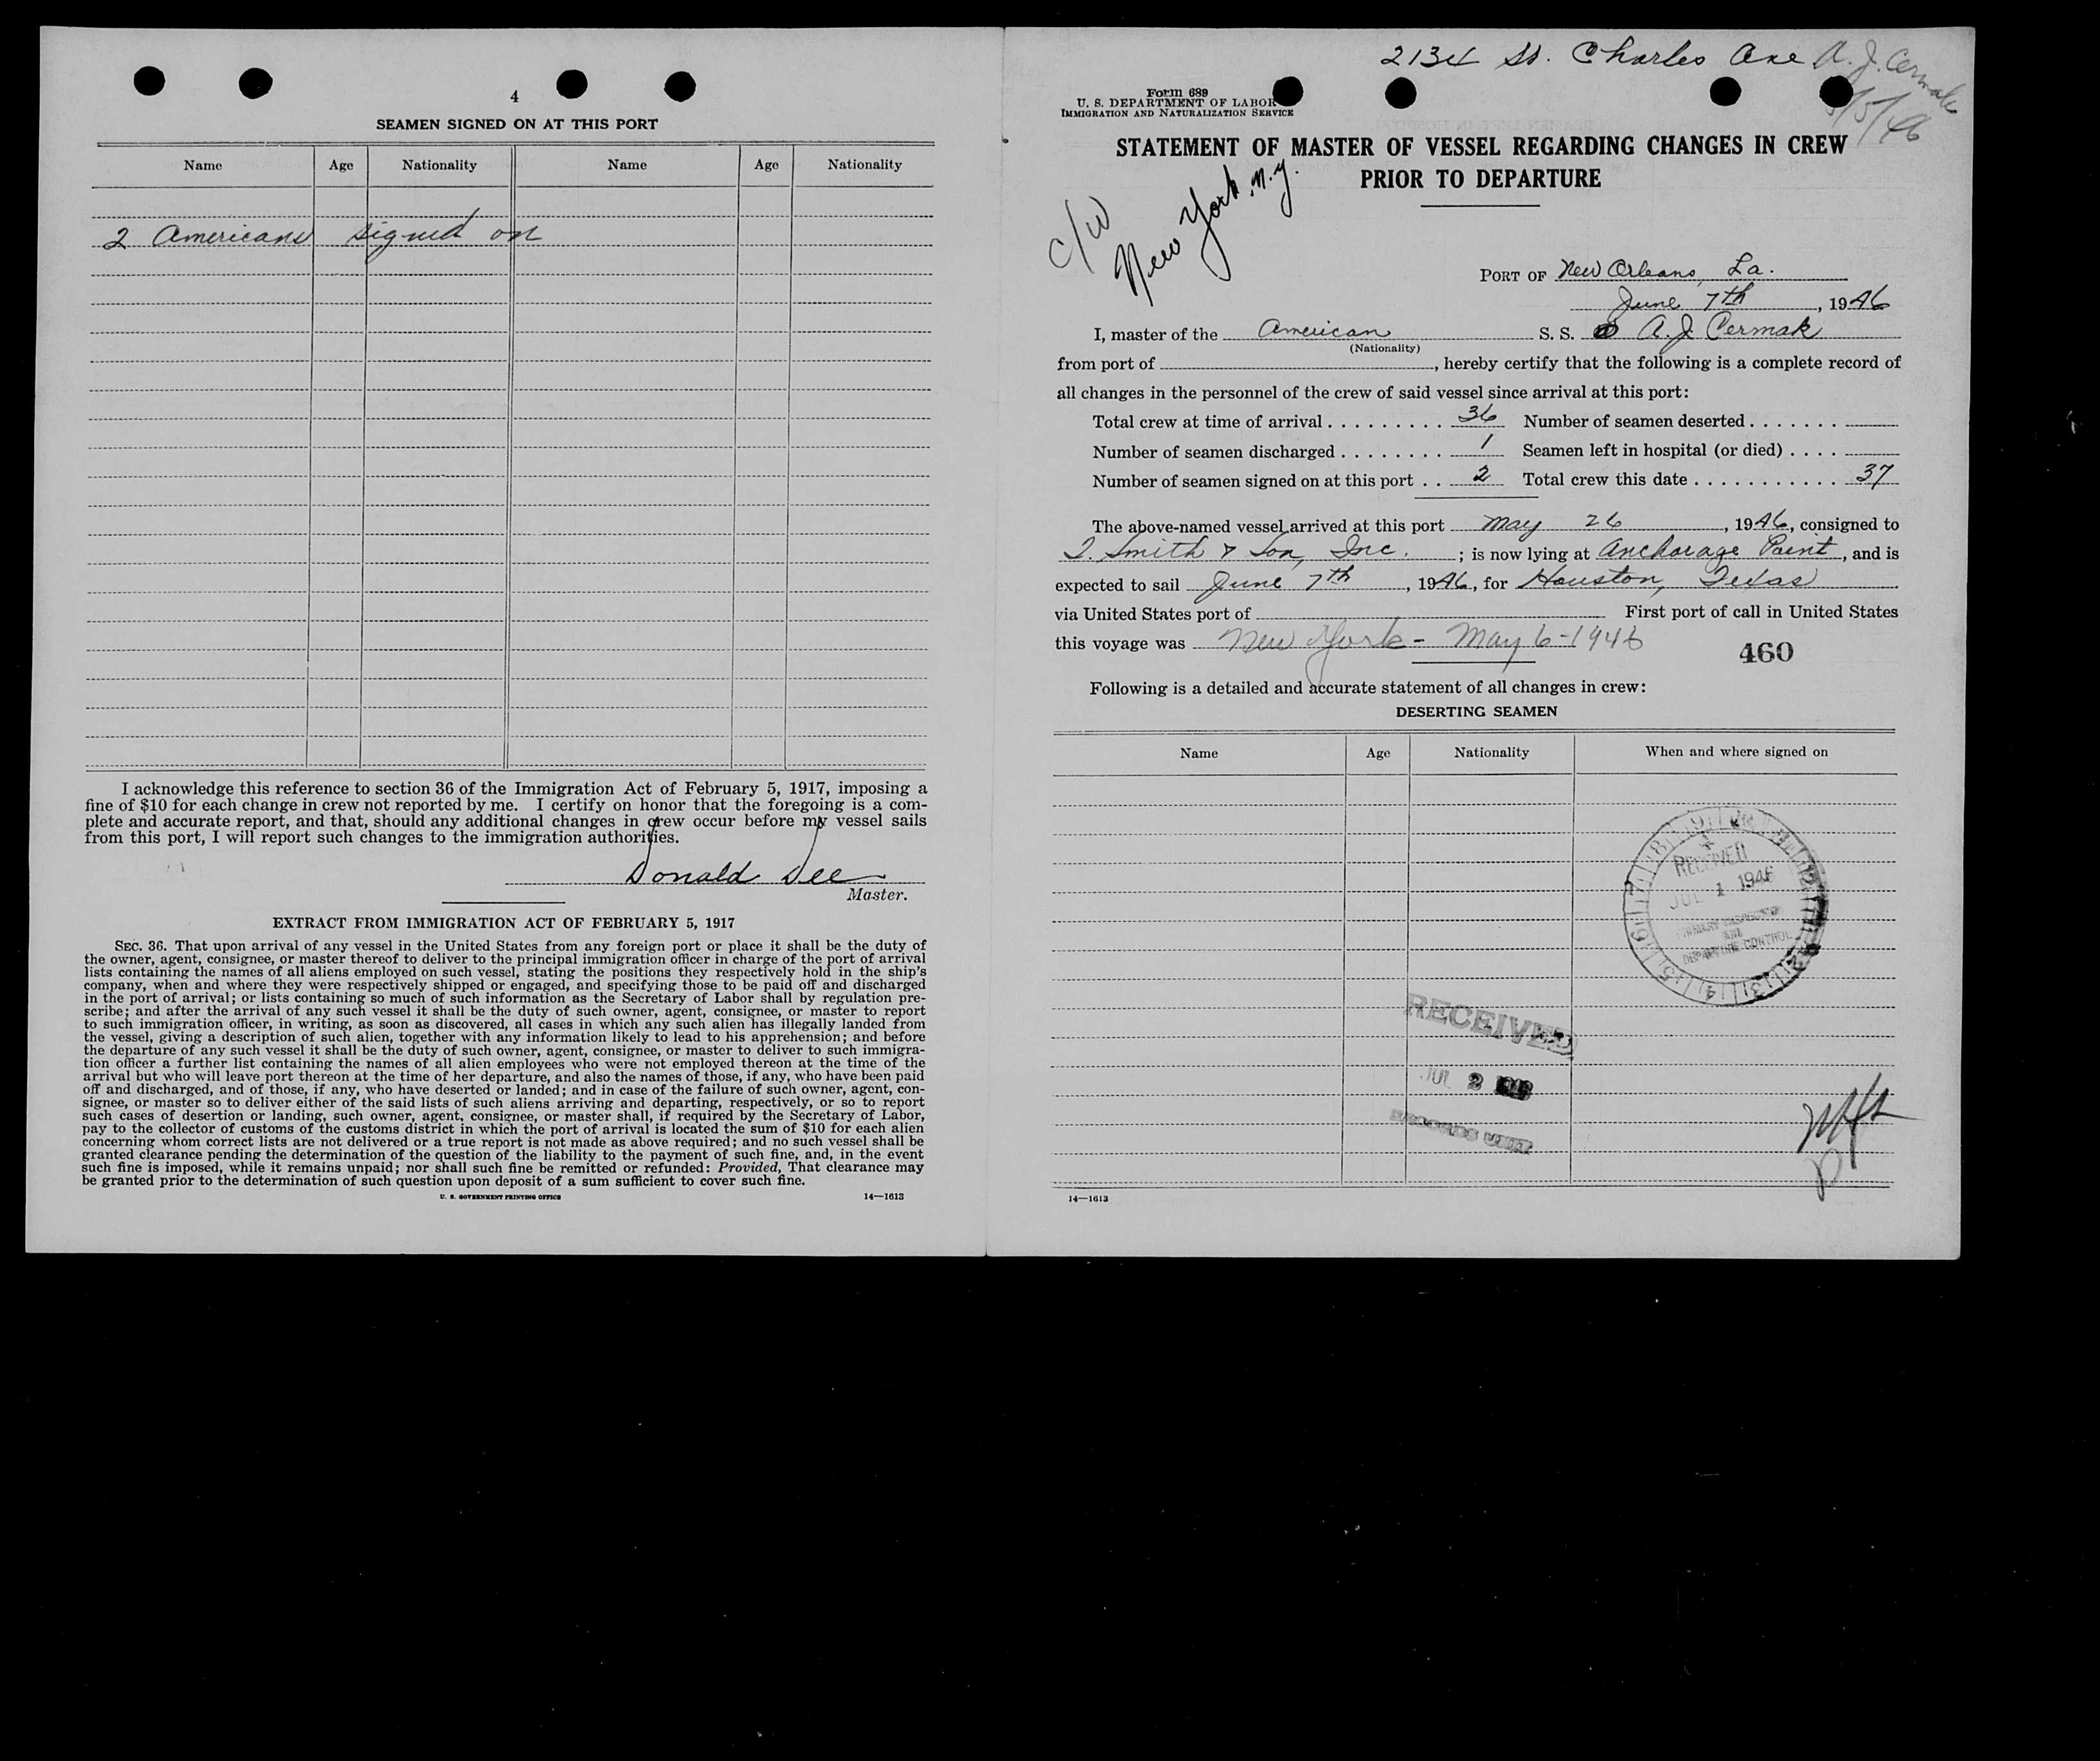 4
SEAMEN SIGNED ON AT THIS PORT
Name Age Nationality Name Age Nationality
2 Americans signed on
I acknowledge this reference to section 36 of the Immigration Act of February 5, 1917, imposing a
fine of $10 for each change in crew not reported by me. I certify on honor that the foregoing is a com-
plete and accurate report, and that, should any additional changes in crew occur before my vessel sails
from this port, I will report such changes to the immigration authorities.
Donald Dee
Master.
EXTRACT FROM IMMIGRATION ACT OF FEBRUARY 5, 1917
SEC. 36. That upon arrival of any vessel in the United States from any foreign port or place it shall be the duty of
the owner, agent, consignee, or master thereof to deliver to the principal immigration officer in charge of the port of arrival
lists containing the names of all aliens employed on such vessel, stating the positions they respectively hold in the ship's
company, when and where they were respectively shipped or engaged, and specifying those to be paid off and discharged
in the port of arrival; or lists containing so much of such information as the Secretary of Labor shall by regulation pre-
scribe; and after the arrival of any such vessel it shall be the duty of such owner, agent, consignee, or master to report
to such immigration officer, in writing, as soon as discovered, all cases in which any such alien has illegally landed from
the vessel, giving a description of such alien, together with any information likely to lead to his apprehension; and before
the departure of any such vessel it shall be the duty of such owner, agent, consignee, or master to deliver to such immigra-
tion officer a further list containing the names of all alien employees who were not employed thereon at the time of the
arrival but who will leave port thereon at the time of her departure, and also the names of those, if any, who have been paid
off and discharged, and of those, if any, who have deserted or landed; and in case of the failure of such owner, agent, con-
signee, or master so to deliver either of the said lists of such aliens arriving and departing, respectively, or so to report
such cases of desertion or landing, such owner, agent, consignee, or master shall, if required by the Secretary of Labor,
pay to the collector of customs of the customs district in which the port of arrival is located the sum of $10 for each alien
concerning whom correct lists are not delivered or a true report is not made as above required; and no such vessel shall be
granted clearance pending the determination of the question of the liability to the payment of such fine, and, in the event
such fine is imposed, while it remains unpaid; nor shall such fine be remitted or refunded: Provided, That clearance may
be granted prior to the determination of such question upon deposit of a sum sufficient to cover such fine.
U. S. GOVERNMENT PRINTING OFFICE 14—1613
2134 St. Charles Ave A. J. Cermak
/5/46
Form 689
U. S. DEPARTMENT OF LABOR
IMMIGRATION AND NATURALIZATION SERVICE
STATEMENT OF MASTER OF VESSEL REGARDING CHANGES IN CREW
PRIOR TO DEPARTURE
c/w
New York, N.Y.
PORT OF New Orleans, La.
June 7th, 1946
I, master of the American S. S. A. J. Cermak
(Nationality)
from port of , hereby certify that the following is a complete record of
all changes in the personnel of the crew of said vessel since arrival at this port:
Total crew at time of arrival . . . . . . . . . 36 Number of seamen deserted . . . . . . .
Number of seamen discharged . . . . . . . . 1 Seamen left in hospital (or died) . . . .
Number of seamen signed on at this port . . 2 Total crew this date . . . . . . . . . . . 37
The above-named vessel arrived at this port May 26, 1946, consigned to
T. Smith & Son, Inc. ; is now lying at Anchorage Point, and is
expected to sail June 7th, 1946, for Houston, Texas
via United States port of First port of call in United States
this voyage was New York - May 6-1946
460
Following is a detailed and accurate statement of all changes in crew:
DESERTING SEAMEN
Name Age Nationality When and where signed on
RECEIVED
JUL 1 1946
PRIMARY INSPECTION
AND
DEPARTURE CONTROL
RECEIVED
JUL 2
RECORDS UNIT
14—1613